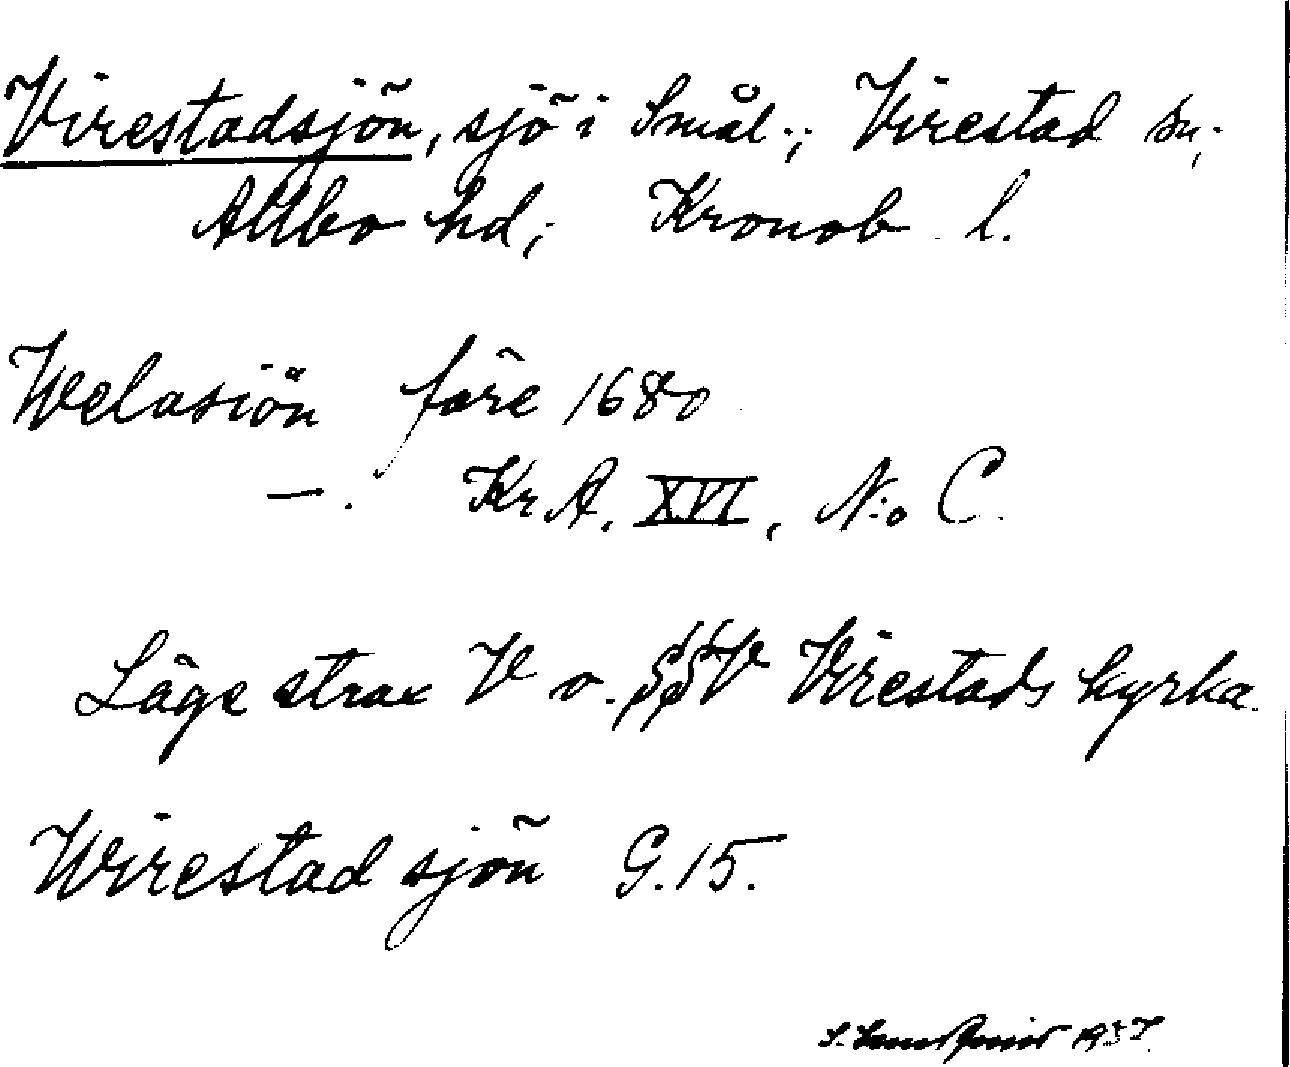 Virestadsjön, sjö i Smål.; Virestad sn;
Allbo hd; Kronob. l.
Welasiön före 1680
—. Kr A. XVI, N:o C.
Läge strax V o. SSV Virestads kyrka.
Wirestad sjön G.15.
1937